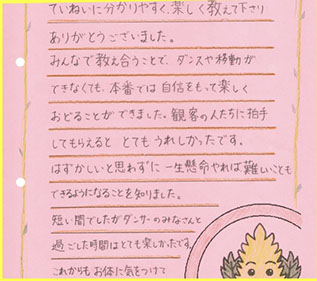 ていねいに分かりやすく、楽しく教えて下さり
ありがとうございました。
みんなで教え合うことで、ダンスや移動が
できなくても、本番では自信をもって楽しく
おどることができました。観客の人たちに拍手
してもらえると とてもうれしかったです。
はずかしいと思わずに 一生懸命やれば難しいことも
できるようになることを知りました。
短い間でしたがダンサーのみなさんと
過ごした時間はとても楽しかったです。
これからも お体に気をつけて